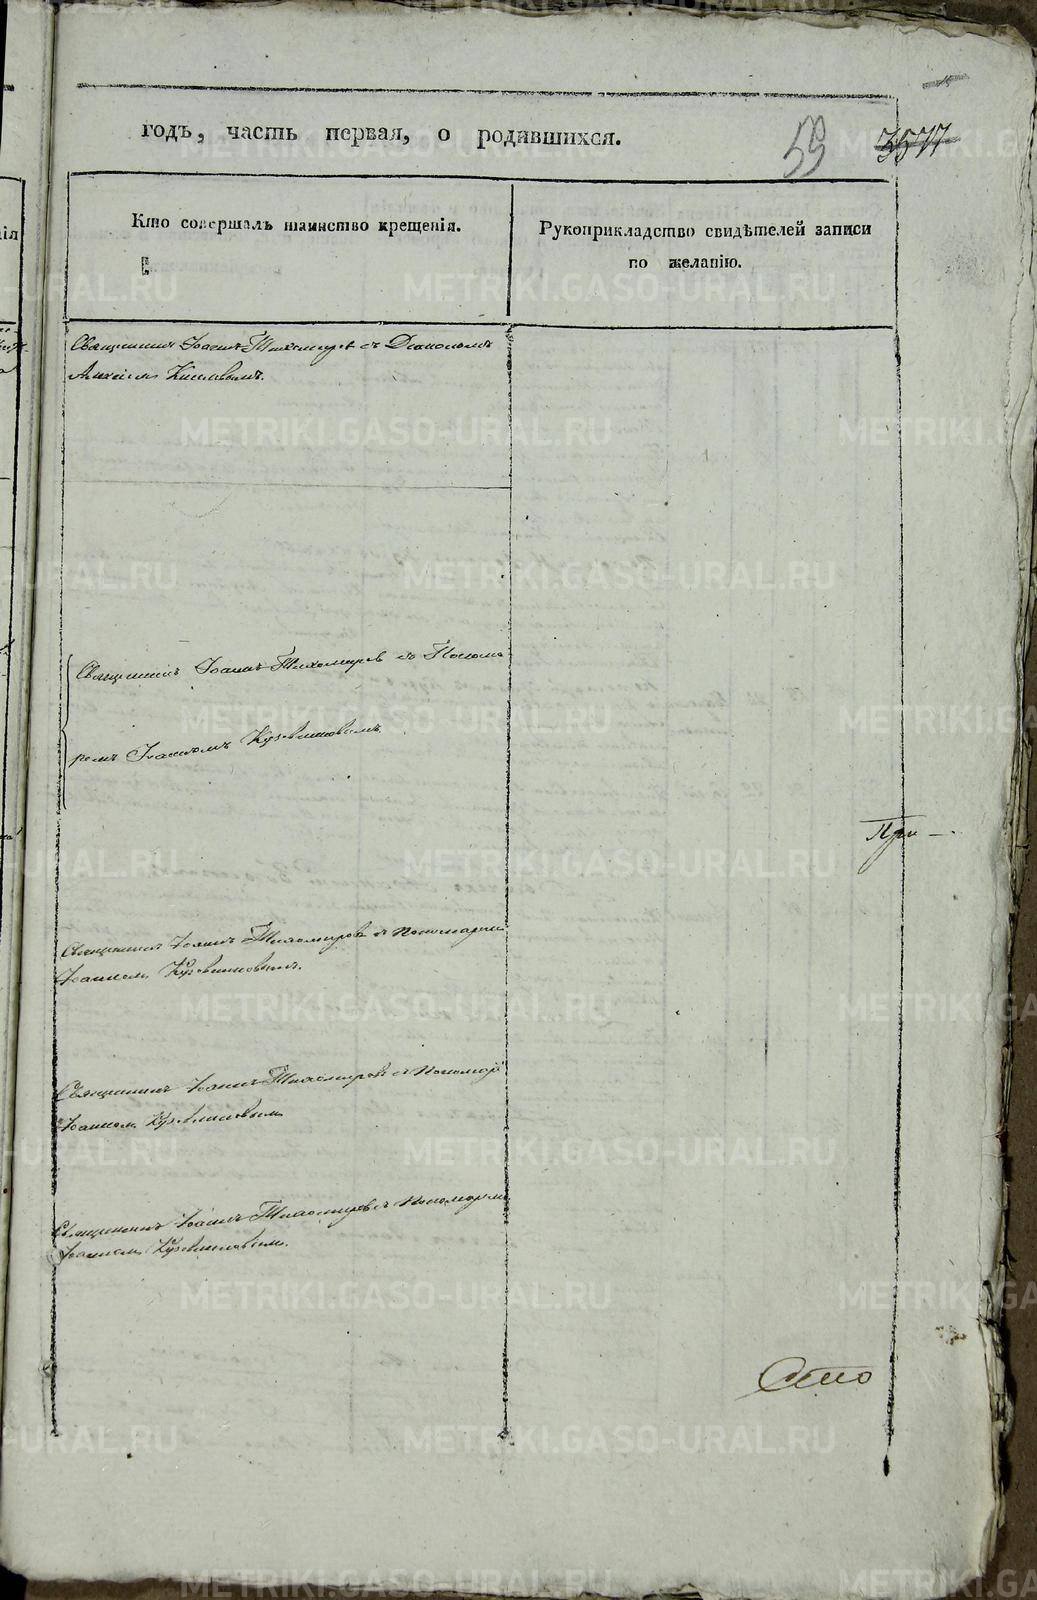 годъ, часть первая, о родившихся.
59
Кто совершалъ таинство крещенія.
Рукоприкладство свидѣтелей записи
по желанію.
Священникъ Іоаннъ Тихомировъ съ Діакономъ
Священникъ Іоаннъ Тихомировъ съ Понома-
ремъ Іоанномъ Кузовниковымъ
При-
Священникъ Іоаннъ Тихомировъ съ Пономаремъ
Іоанномъ Кузовниковымъ.
Священникъ Іоаннъ Тихомировъ съ Пономар
Іоанномъ Кузовниковымъ
Священникъ Іоаннъ Тихомировъ съ Пономаремъ
Іоанномъ Кузовниковымъ.
METRIKI.GASO-URAL.RU